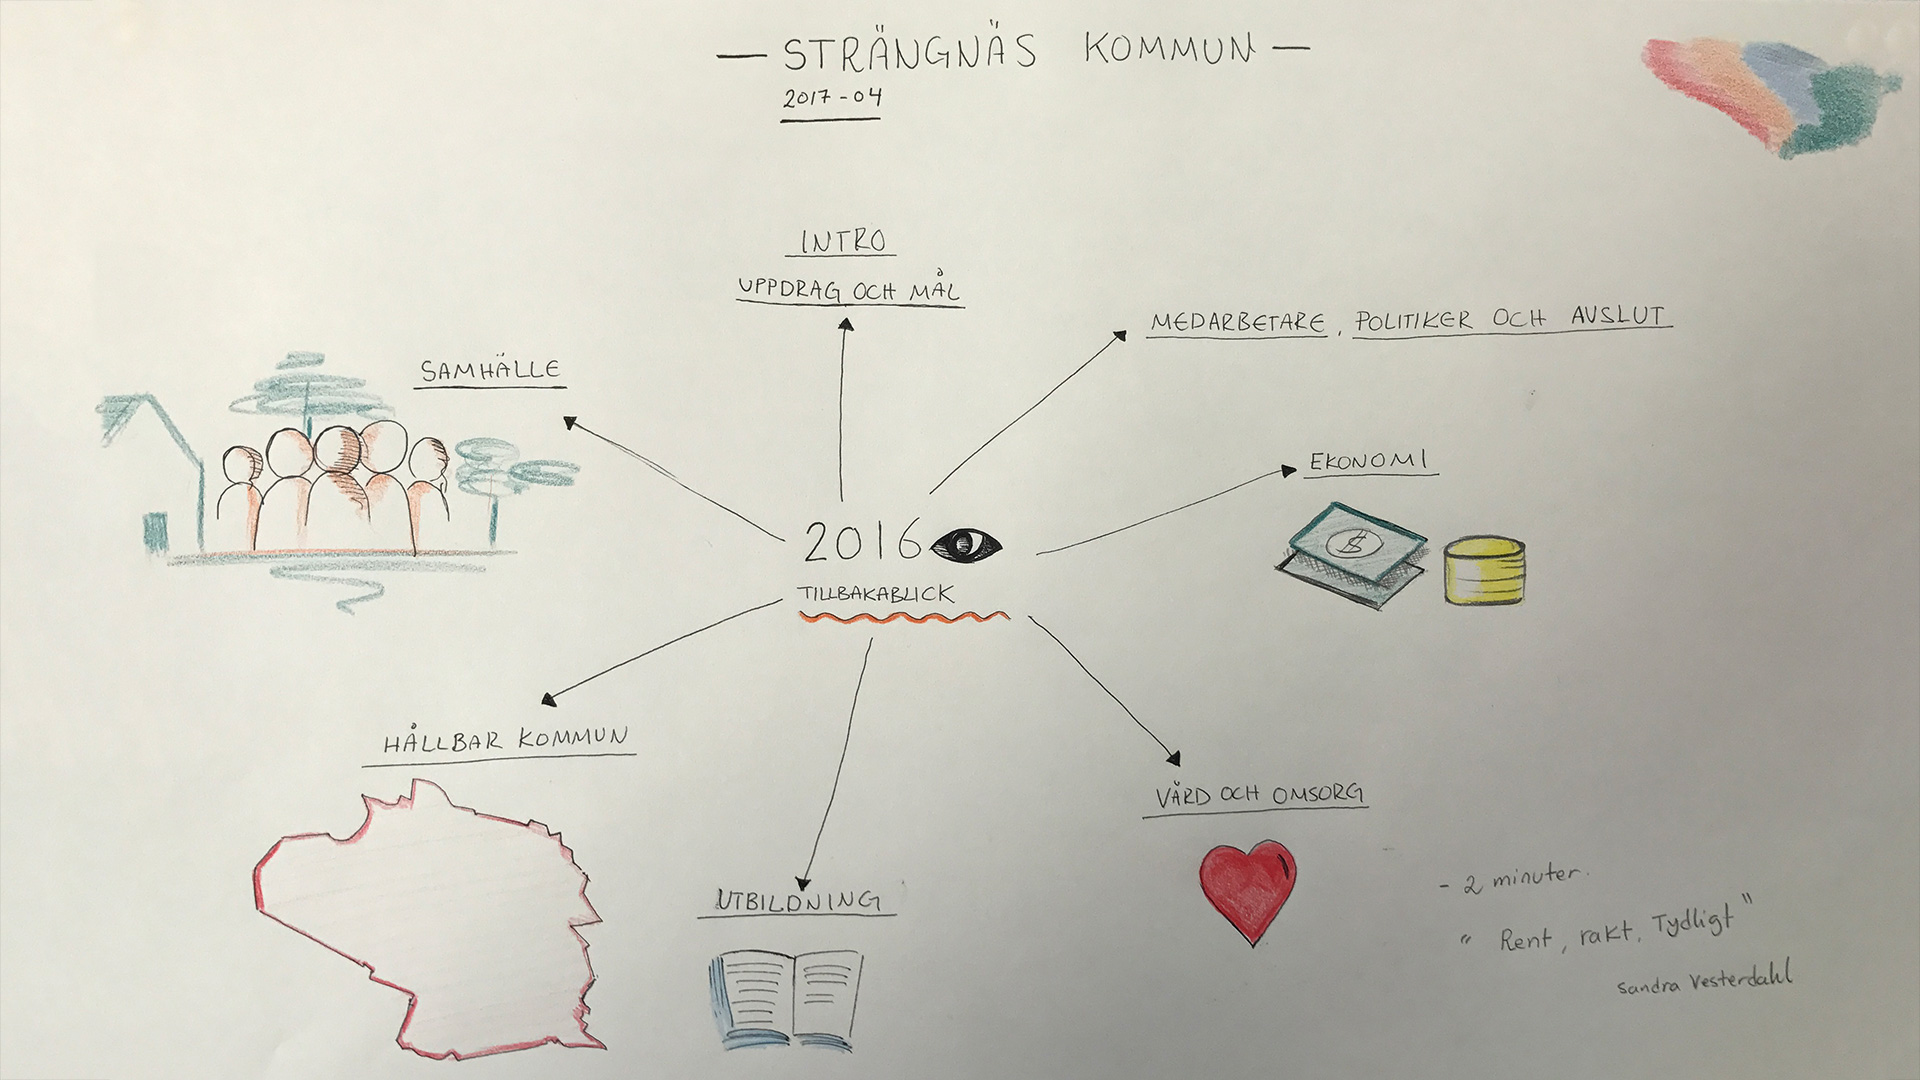 — STRÄNGNÄS KOMMUN —
2017-04
INTRO
UPPDRAG OCH MÅL
MEDARBETARE, POLITIKER OCH AVSLUT
SAMHÄLLE
EKONOMI
$
2016
TILLBAKABLICK
HÅLLBAR KOMMUN
VÅRD OCH OMSORG
UTBILDNING
- 2 minuter.
" Rent, rakt, Tydligt"
Sandra Vesterdahl